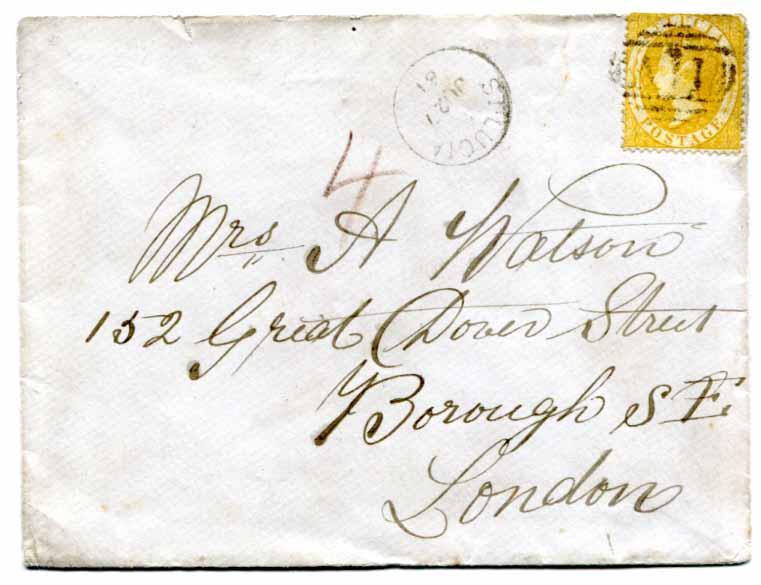 ST LUCIA
JU 27
81
A11
POSTAGE
4
Mrs. A Watson
152 Great Dover Street
Borough S.E.
London